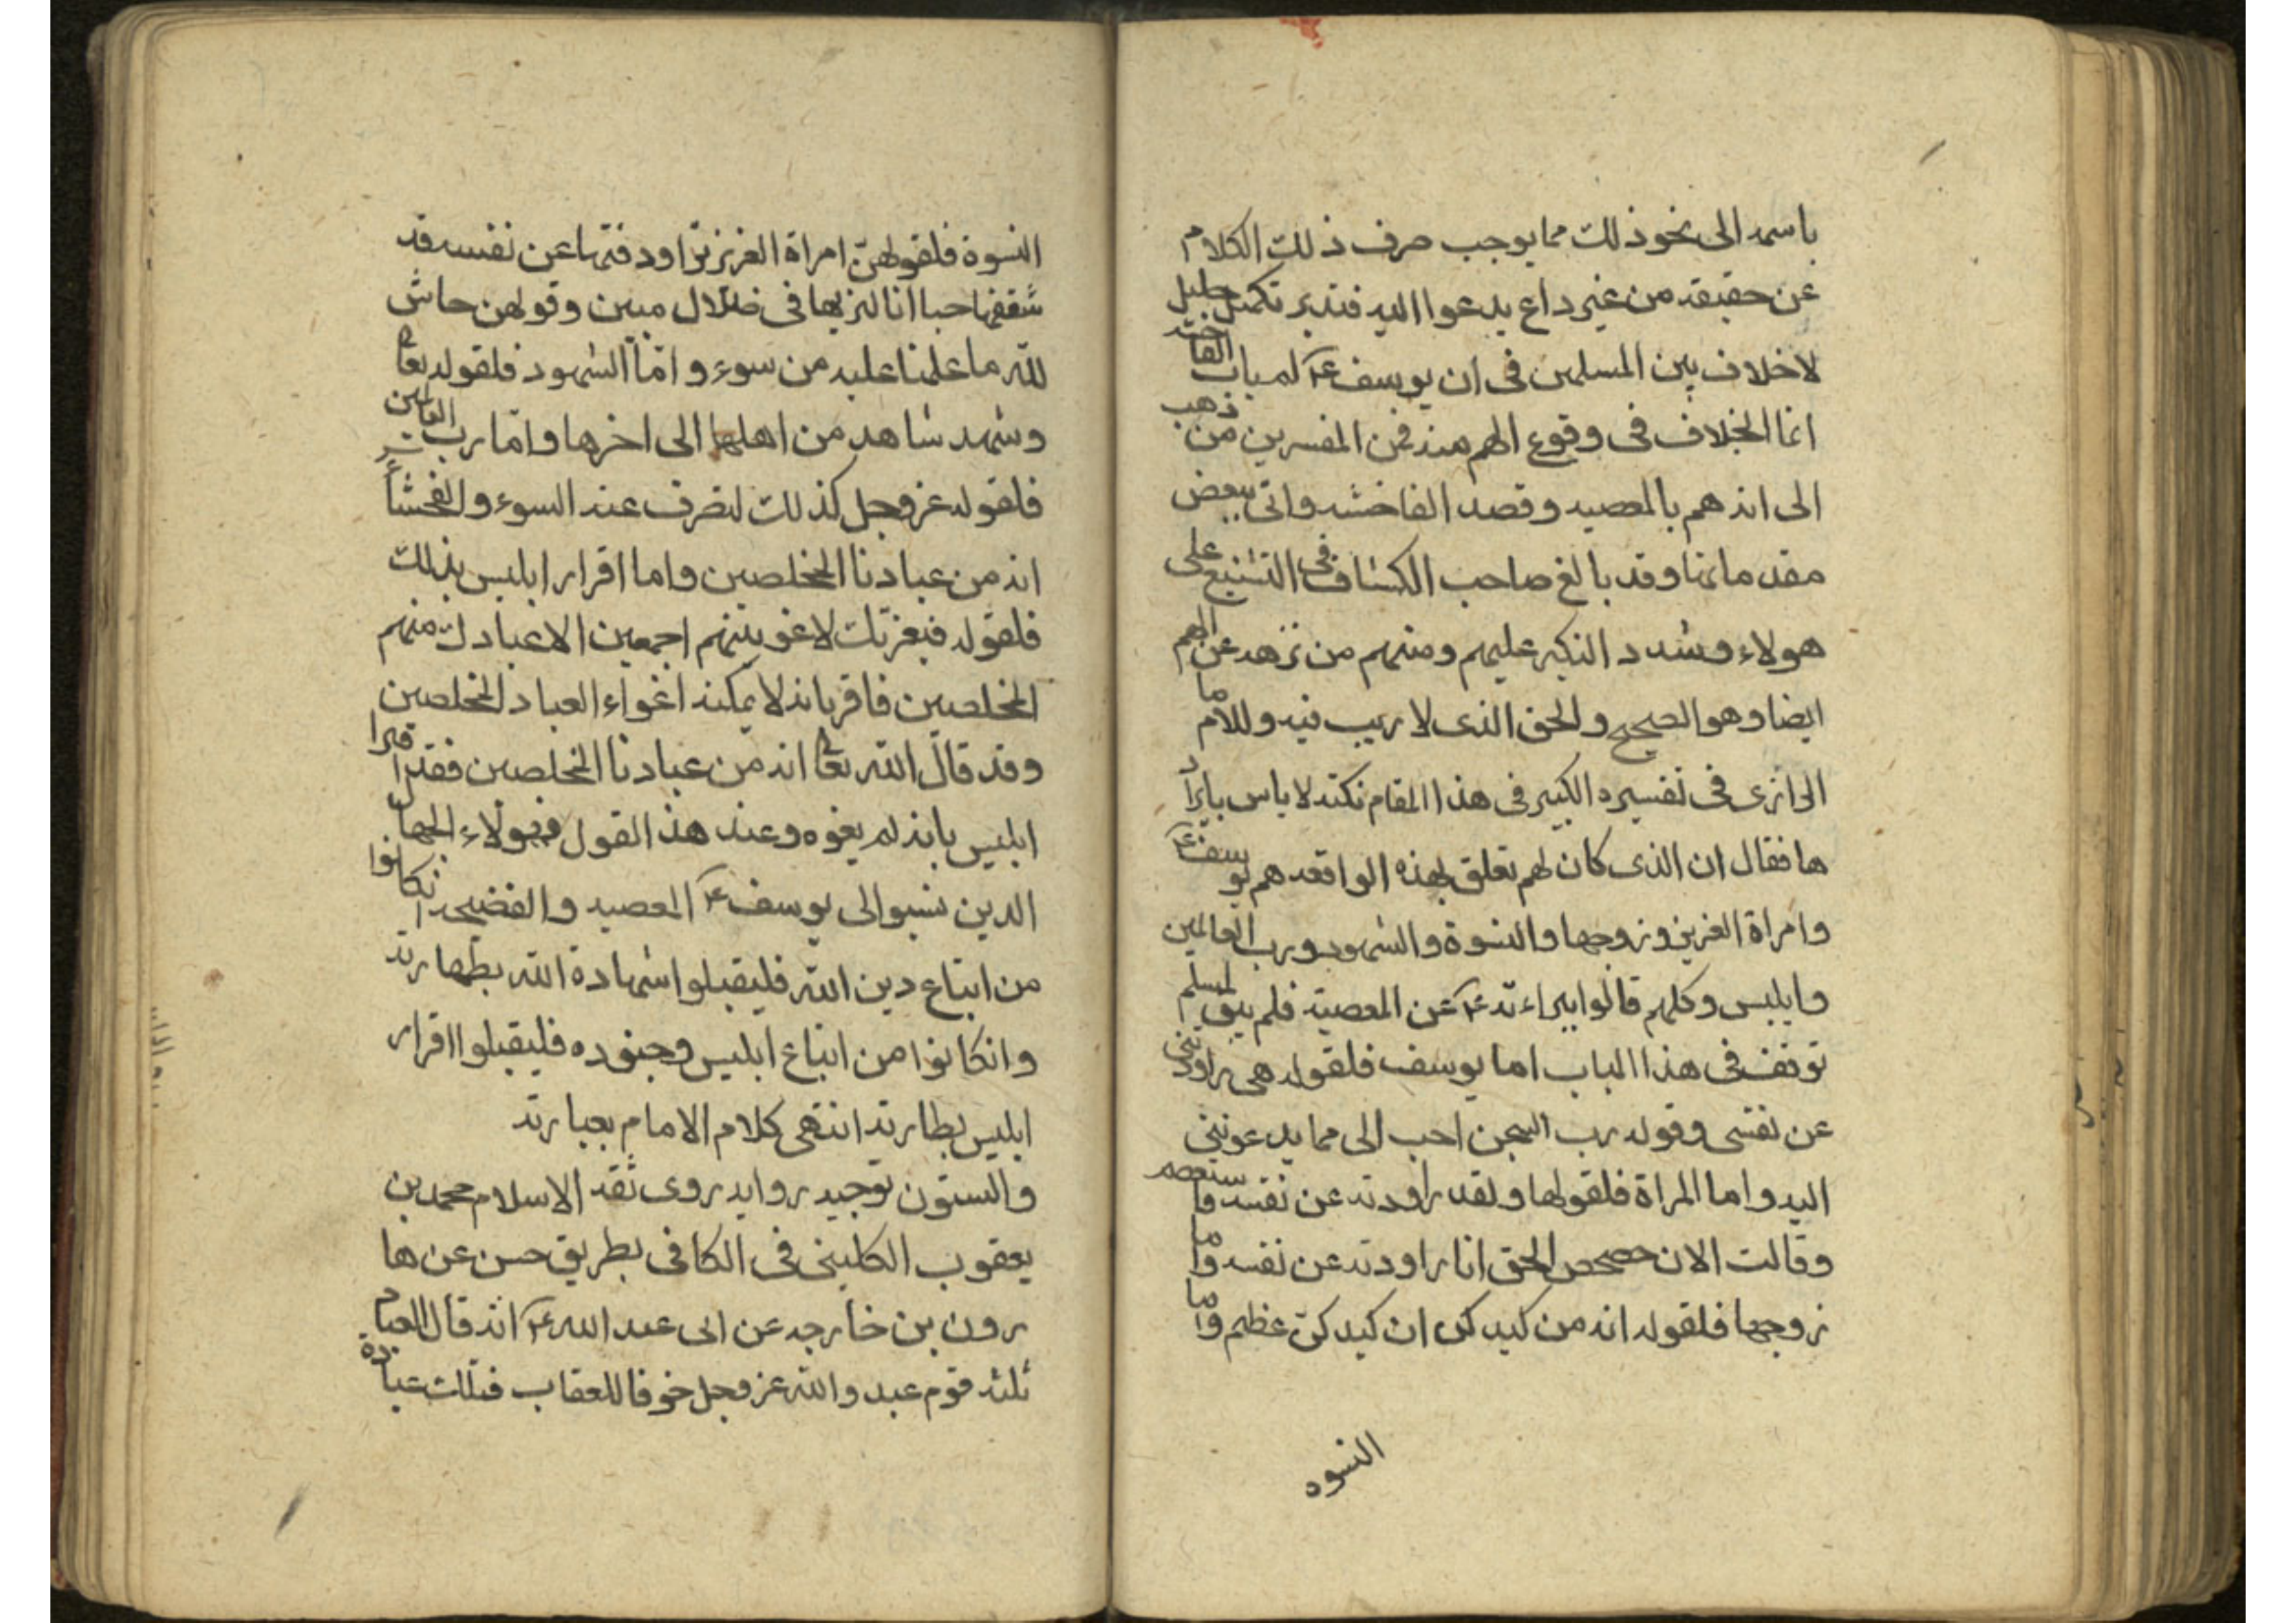 باسمه الى نحو ذلك مما يوجب صرف ذلك الكلام
عن حقيقته من غير داع يدعوا اليه فتدبر تكميل جليل
لا خلاف بين المسلمين فى ان يوسف ع لم يات الفاحشة
انما الخلاف فى وقوع الهم منه فمن المفسرين من ذهب
الى انه هم بالمعصيه وقصد الفاحشه واتى ببعض
مقدماتها وقد بالغ صاحب الكشاف فى التشنيع على
هولاء وشدد النكير عليهم ومنهم من نزهه عن الهم
ايضا وهو الصحيح والحق الذى لا ريب فيه وللامام
الرازى فى تفسيره الكبير فى هذا المقام نكته لا باس بايراد
ها فقال ان الذى كان لهم تعلق بهذه الواقعه هم يوسف ع
وامراة العزيز وزوجها والنسوة والشهود ورب العالمين
وابليس وكلهم قالوا ببراءته ع عن المعصية فلم يبق لمسلم
توقف فى هذا الباب اما يوسف فلقوله هى راودتنى
عن نفسى وقوله رب السجن احب الى مما يدعوننى
اليه واما المراة فلقولها ولقد راودته عن نفسه فاستعصم
وقالت الان حصحص الحق انا راودته عن نفسه واما
زوجها فلقوله انه من كيدكن ان كيدكنّ عظيم واما
النسوه
النسوة فلقولهنّ امراة العزيز تراود فتىها عن نفسه قد
شغفها حبا انا لنريها فى ضلال مبين وقولهن حاش
للّه ما علمنا عليه من سوء وامّا الشهود فلقوله تعا
وشهد شاهد من اهلها الى اخرها وامّا رب العالمين
فلقوله عز وجل كذلك لنصرف عنه السوء والفحشاء
انه من عبادنا المخلصين واما اقرار ابليس بذلك
فلقوله فبعزتك لاغوينهم اجمعين الا عبادك منهم
المخلصين فاقر بانه لا يمكنه اغواء العباد المخلصين
وقد قال اللّه تعا انه من عبادنا المخلصين فقد اقر
ابليس بانه لم يغوه وعند هذا القول فهولاء الجهال
الدين نسبوا الى يوسف ع المعصيه والفضيحه انكانوا
من اتباع دين اللّه فليقبلوا شهادة اللّه بطهارته
وانكانوا من اتباع ابليس وجنوده فليقبلوا اقرار
ابليس بطهارته انتهى كلام الامام بعبارته
والستون توجيه روايه روى ثقه الاسلام محمد بن
يعقوب الكلينى فى الكافى بطريق حسن عن ها
رون بن خارجه عن ابى عبد اللّه ع انّه قال العباد
ثلثه قوم عبدوا اللّه عز وجل خوفا للعقاب فتلك عبادة